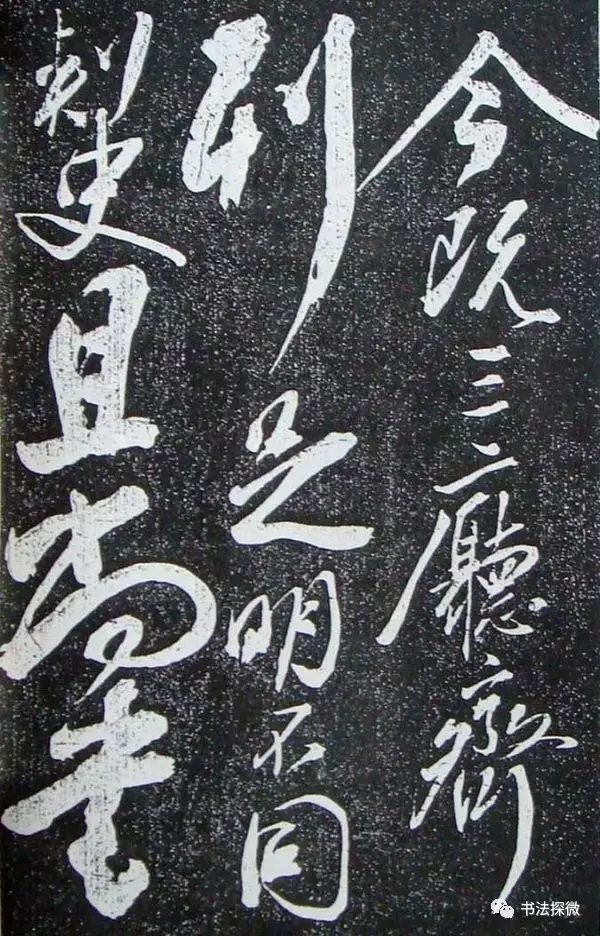 今既三廳齊
列足明不同
刺史且尚書
书法探微